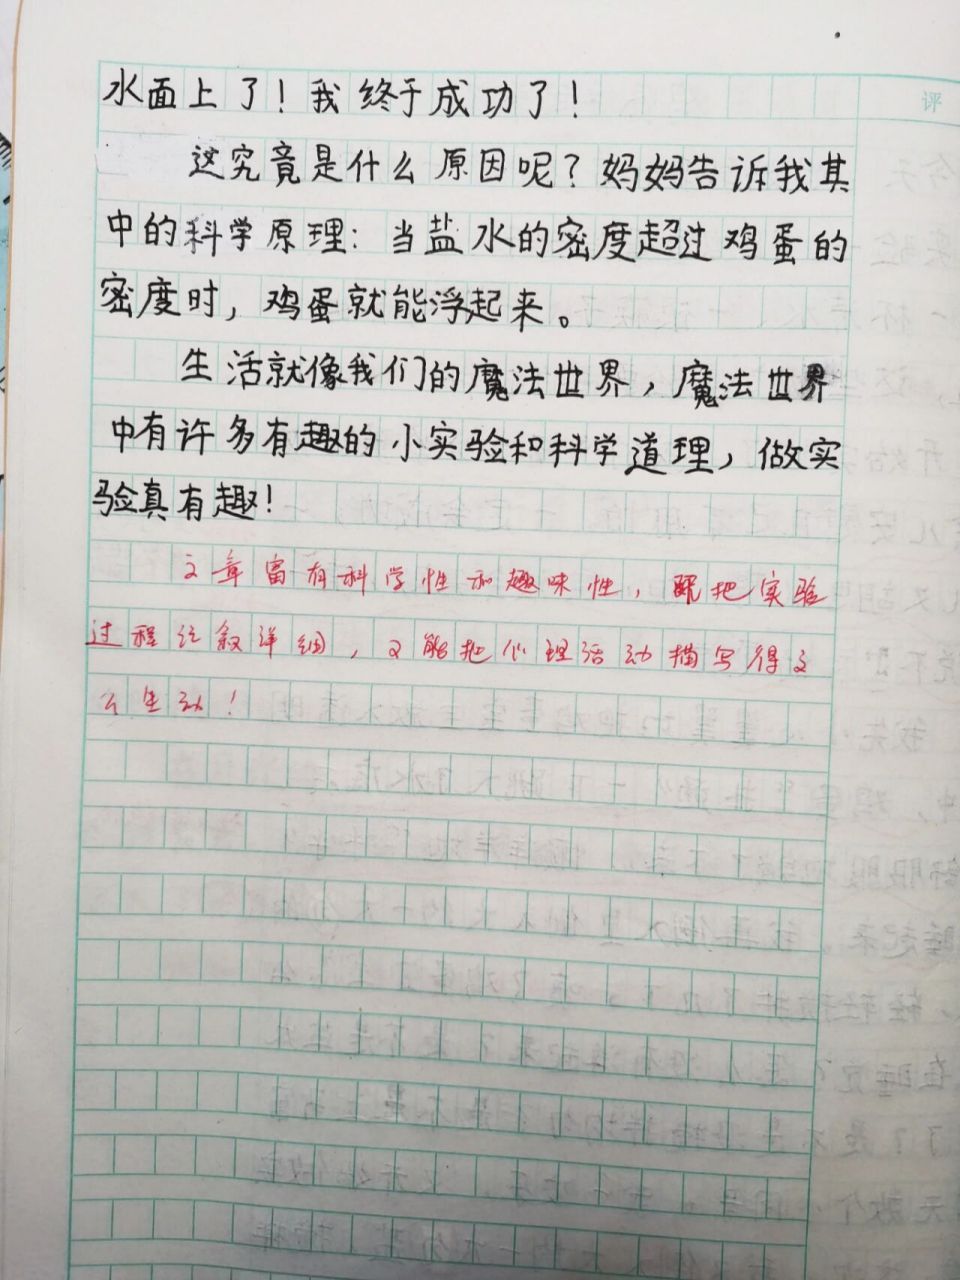 评
水面上了！我终于成功了！
这究竟是什么原因呢？妈妈告诉我其
中的科学原理：当盐水的密度超过鸡蛋的
密度时，鸡蛋就能浮起来。
生活就像我们的魔法世界，魔法世界
中有许多有趣的小实验和科学道理，做实
验真有趣！
文章富有科学性和趣味性，既把实验
过程叙详细，又能把心理活动描写得这
么生动！